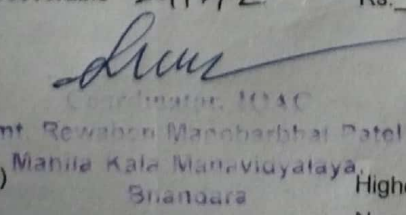 Rs.
Coordinator, IQAC
mt. Rewaben Manoharbhai Patel
Mahila Kala Mahavidyalaya,
) Highe
Bhandara